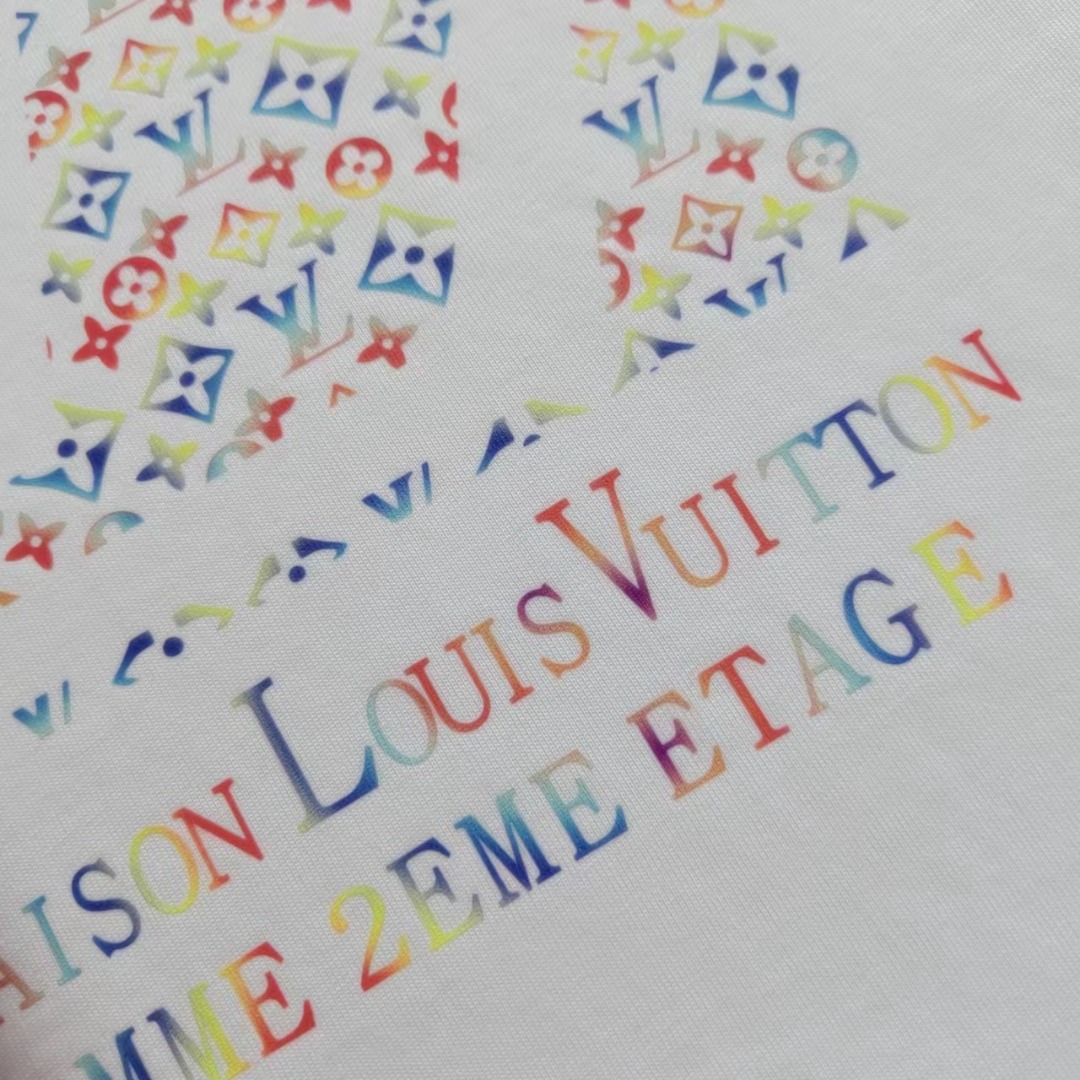 LV
LV
LV
AISON LOUIS VUITTON
MME 2EME ETAGE